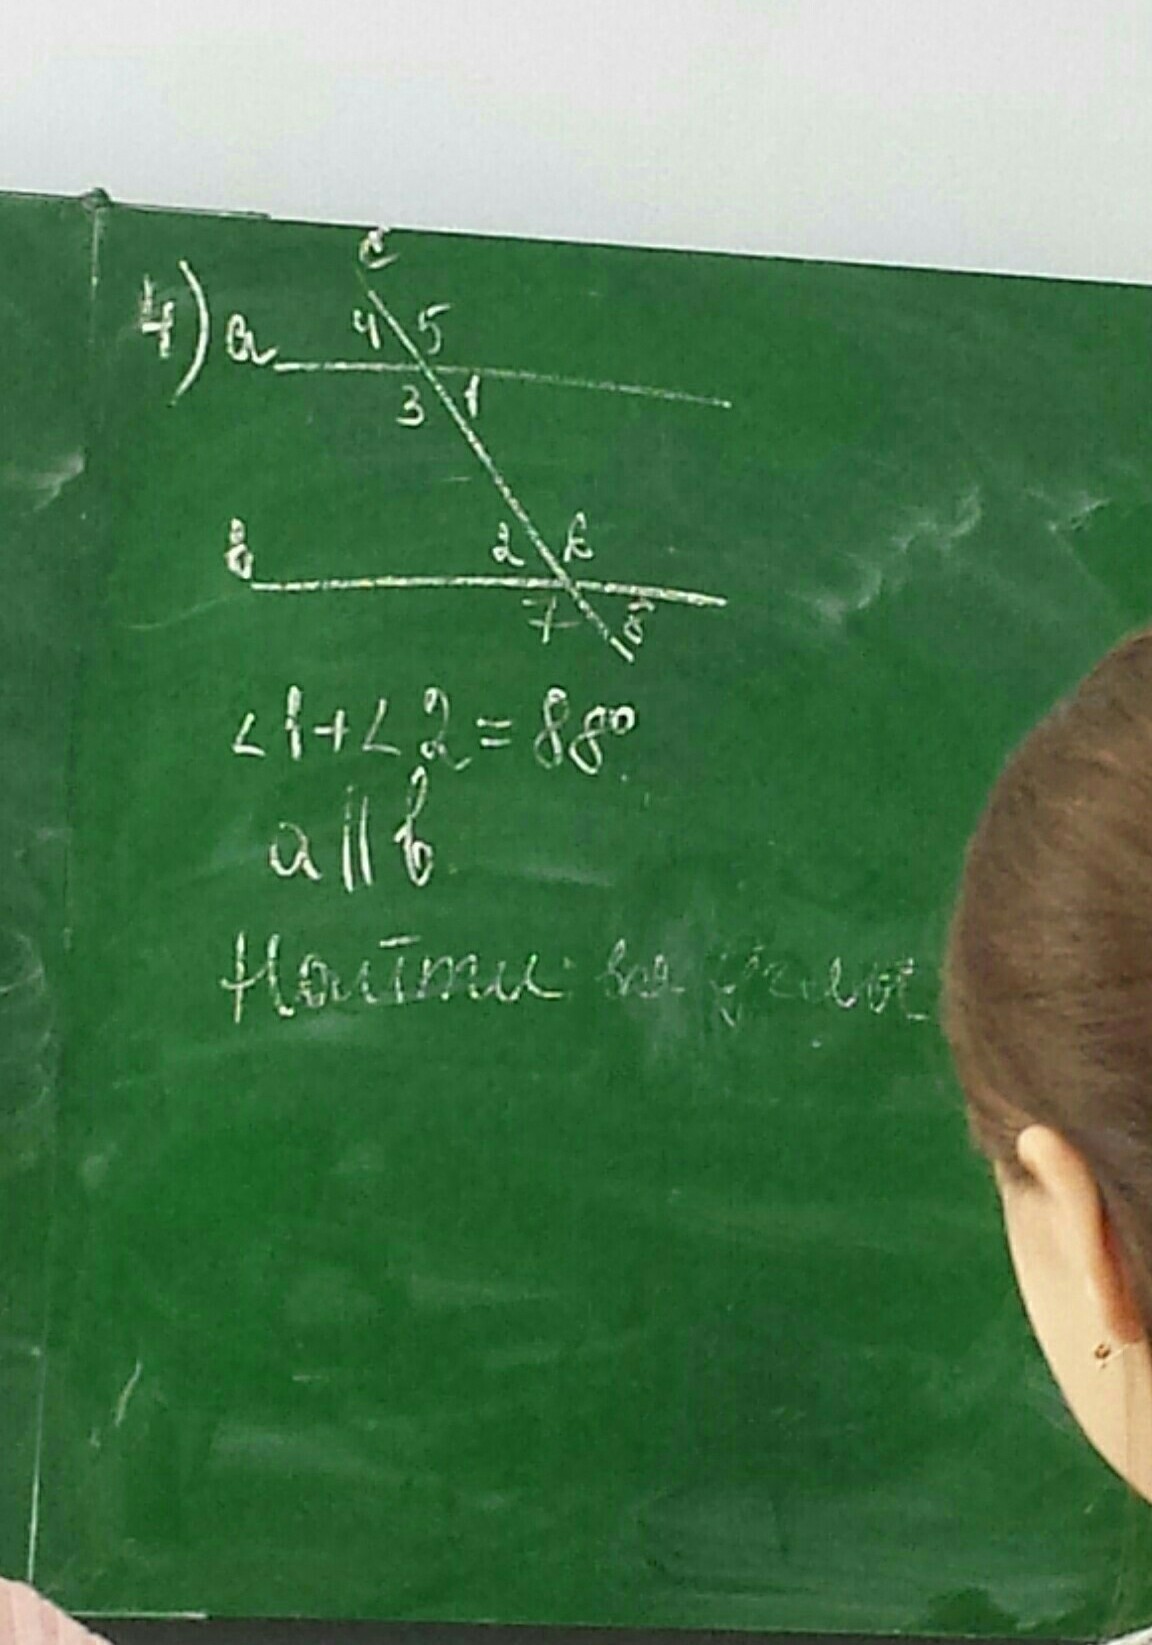 c
4) a 4 5
3 1
в 2 6
7 8
∠1+∠2=88°
a || b
Найти: все углы